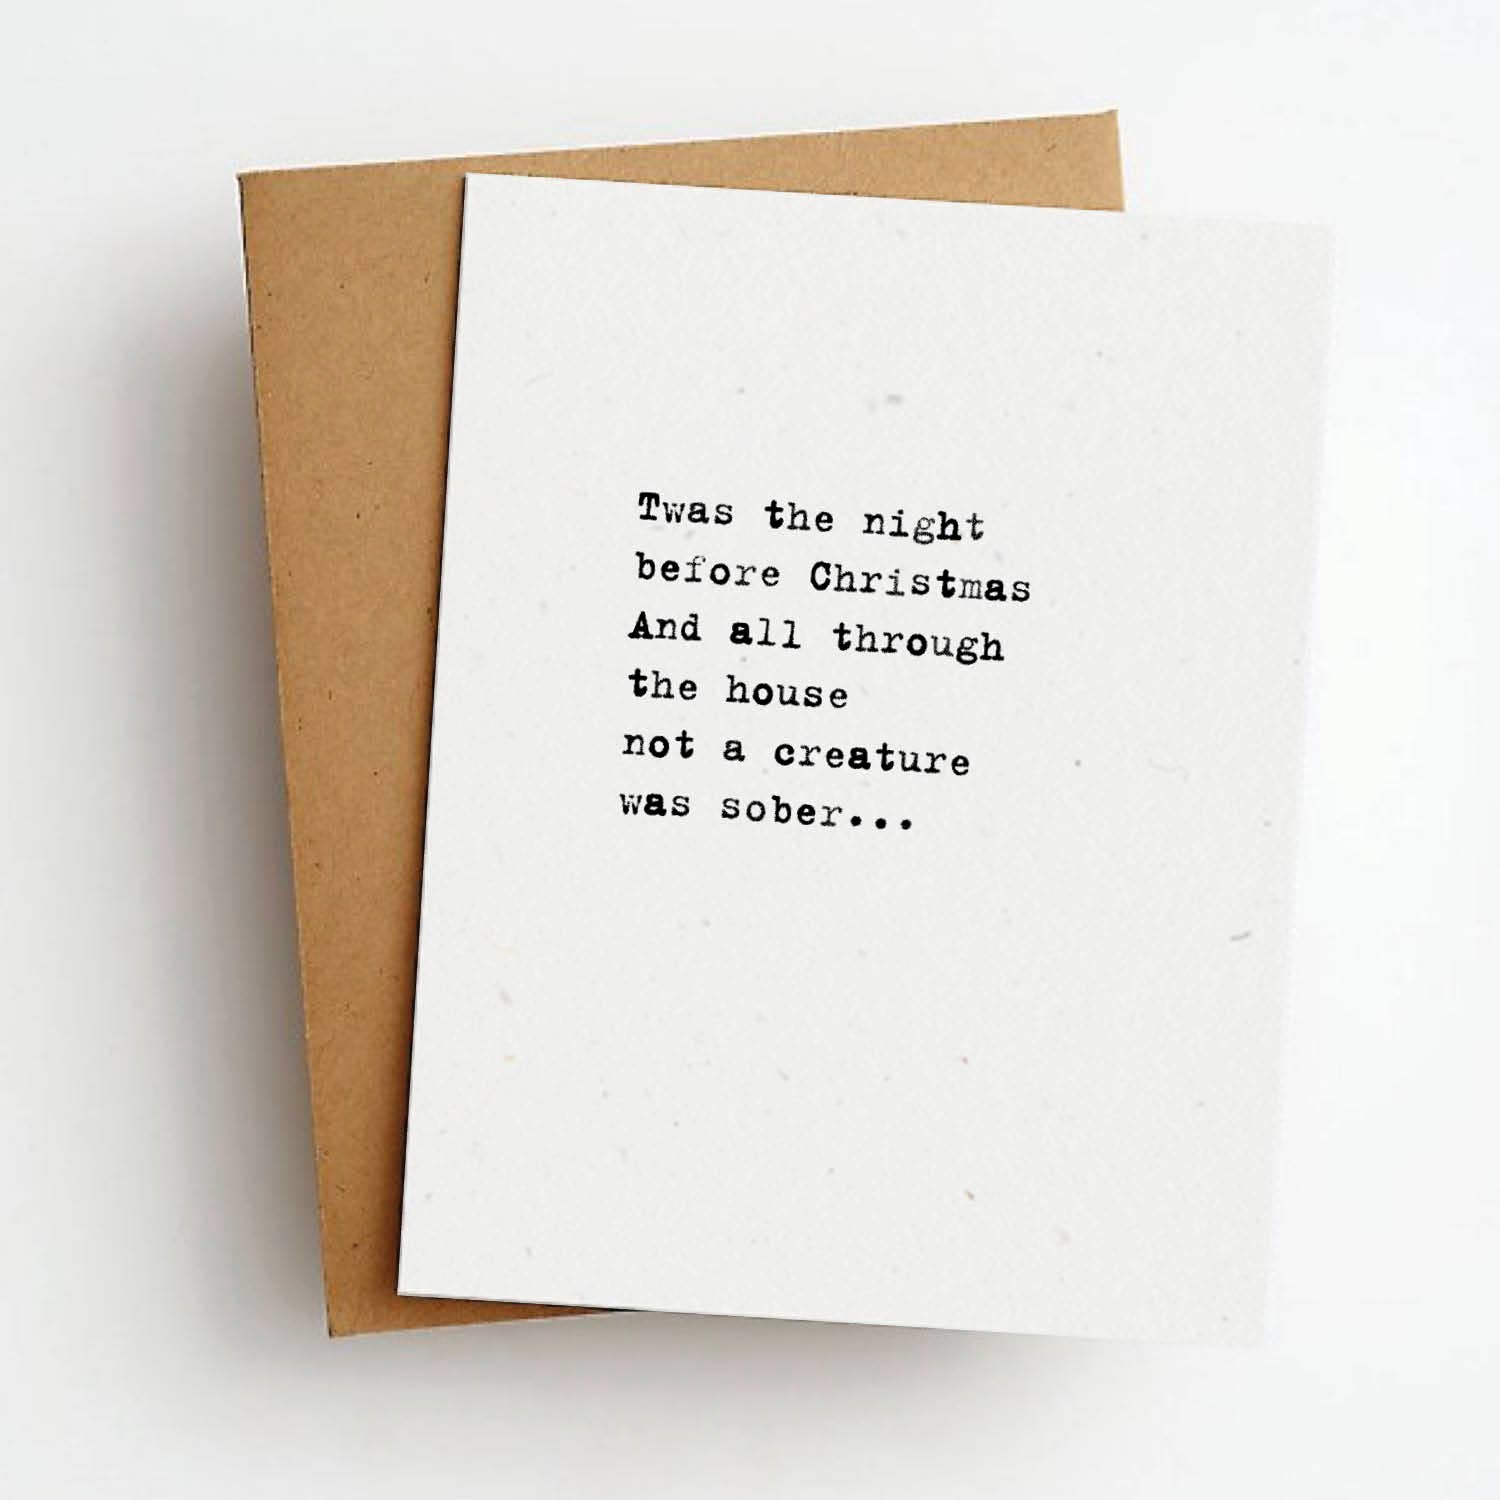 Twas the night
before Christmas
And all through
the house
not a creature
was sober...